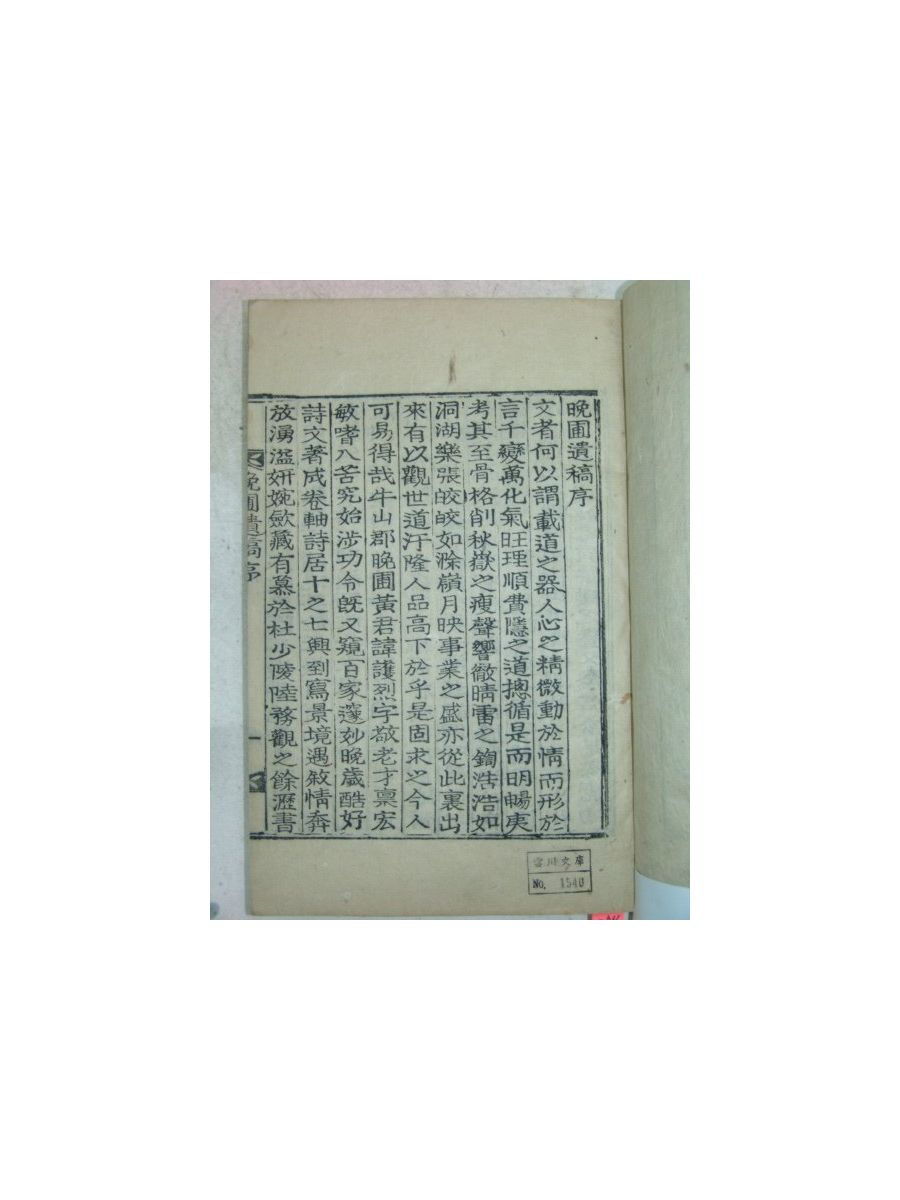 晩圃遺稿序
文者何以謂載道之器人心之精微動於情而形於
言千變萬化氣旺理順費隱之道摠循是而明暢夷
考其至骨格削秋嶽之瘦聲響徹晴雷之鍧浩浩如
洞湖樂張皎皎如滁嶺月映事業之盛亦從此裏出
來有以觀世道汙隆人品高下於乎是固求之今人
可易得哉牛山郡晩圃黃君諱護烈字敬老才禀宏
敏嗜八苦究始涉功令旣又窺百家邃妙晩歲酷好
詩文著成卷軸詩居十之七興到寫景境遇敘情奔
放湧溢姸婉歛藏有慕於杜少陵陸務觀之餘瀝書
晩圃遺稿序
一
雲川文庫
No. 1540